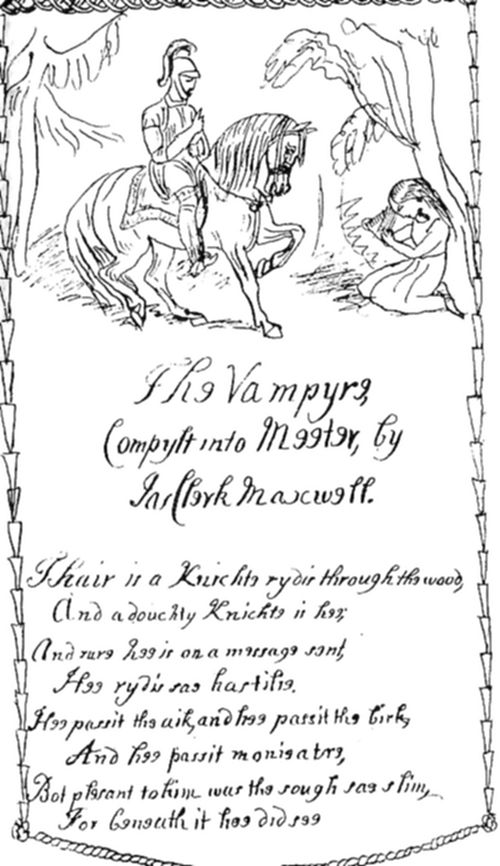 The Vampyre,
Compylt into Meeter, by
Jas Clerk Maxwell.
Thair is a Knichte rydis through the wood,
And a douchty Knichte is hee;
And sure hee is on a message sent,
Hee rydis sae hastilie.
Hee passit the aik, and hee passit the birk,
And hee passit monie a tre,
Bot plesant to him was the sough sae slim,
For beneath it hee did see